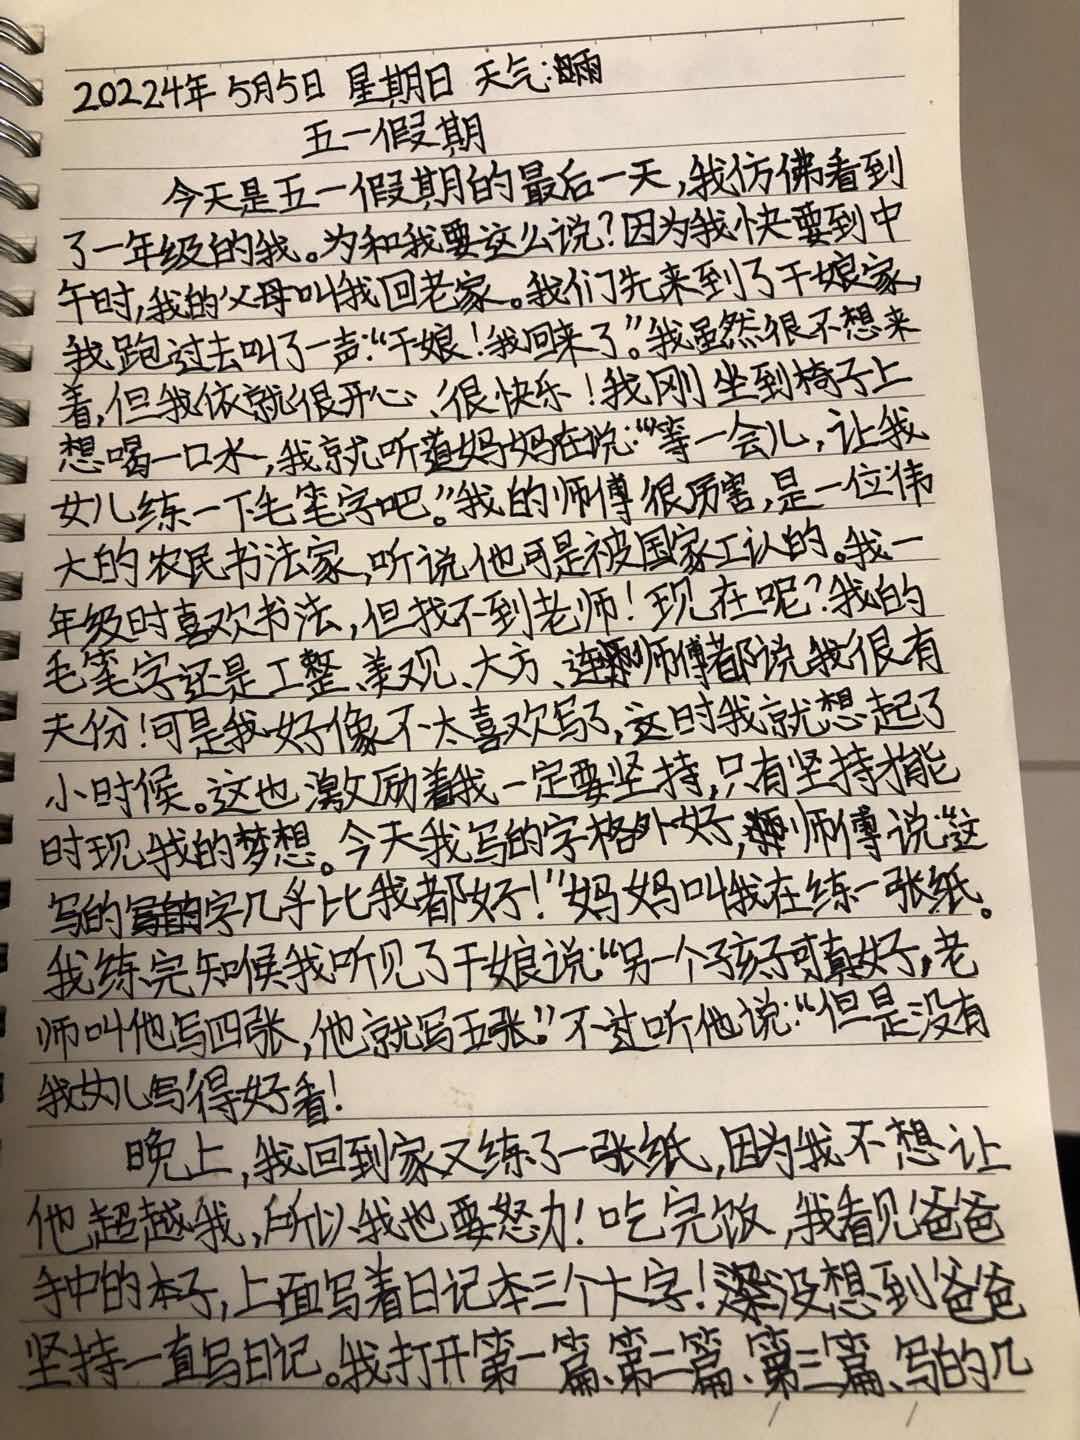 20224年5月5日 星期日 天气:雨
五一假期
今天是五一假期的最后一天,我仿佛看到
了一年级的我。为和我要这么说?因为我快要到中
午时,我的父母叫我回老家。我们先来到了干娘家,
我跑过去叫了一声:“干娘!我回来了。”我虽然很不想来
着,但我依就很开心、很快乐!我刚坐到椅子上
想喝一口水,我就听道妈妈在说:“等一会儿,让我
女儿练一下毛笔字吧。”我的师傅很厉害,是一位伟
大的农民书法家,听说他可是被国家工认的。我一
年级时喜欢书法,但找不到老师!现在呢?我的
毛笔字还是工整、美观、大方、连师傅都说我很有
夫份!可是我好像不太喜欢写了,这时我就想起了
小时候。这也激励着我一定要坚持,只有坚持才能
时现我的梦想。今天我写的字格外好,师傅说“这
写的字几乎比我都好!”妈妈叫我在练一张纸。
我练完知候我听见了干娘说“另一个孩子可真好,老
师叫他写四张,他就写五张。”不过听他说:“但是没有
我女儿写得好看!
晚上,我回到家又练了一张纸,因为我不想让
他超越我,所以我也要努力!吃完饭,我看见爸爸
手中的本子,上面写着日记本三个大字!没想到爸爸
坚持一直写日记。我打开第一篇、第二篇、第三篇、写的几